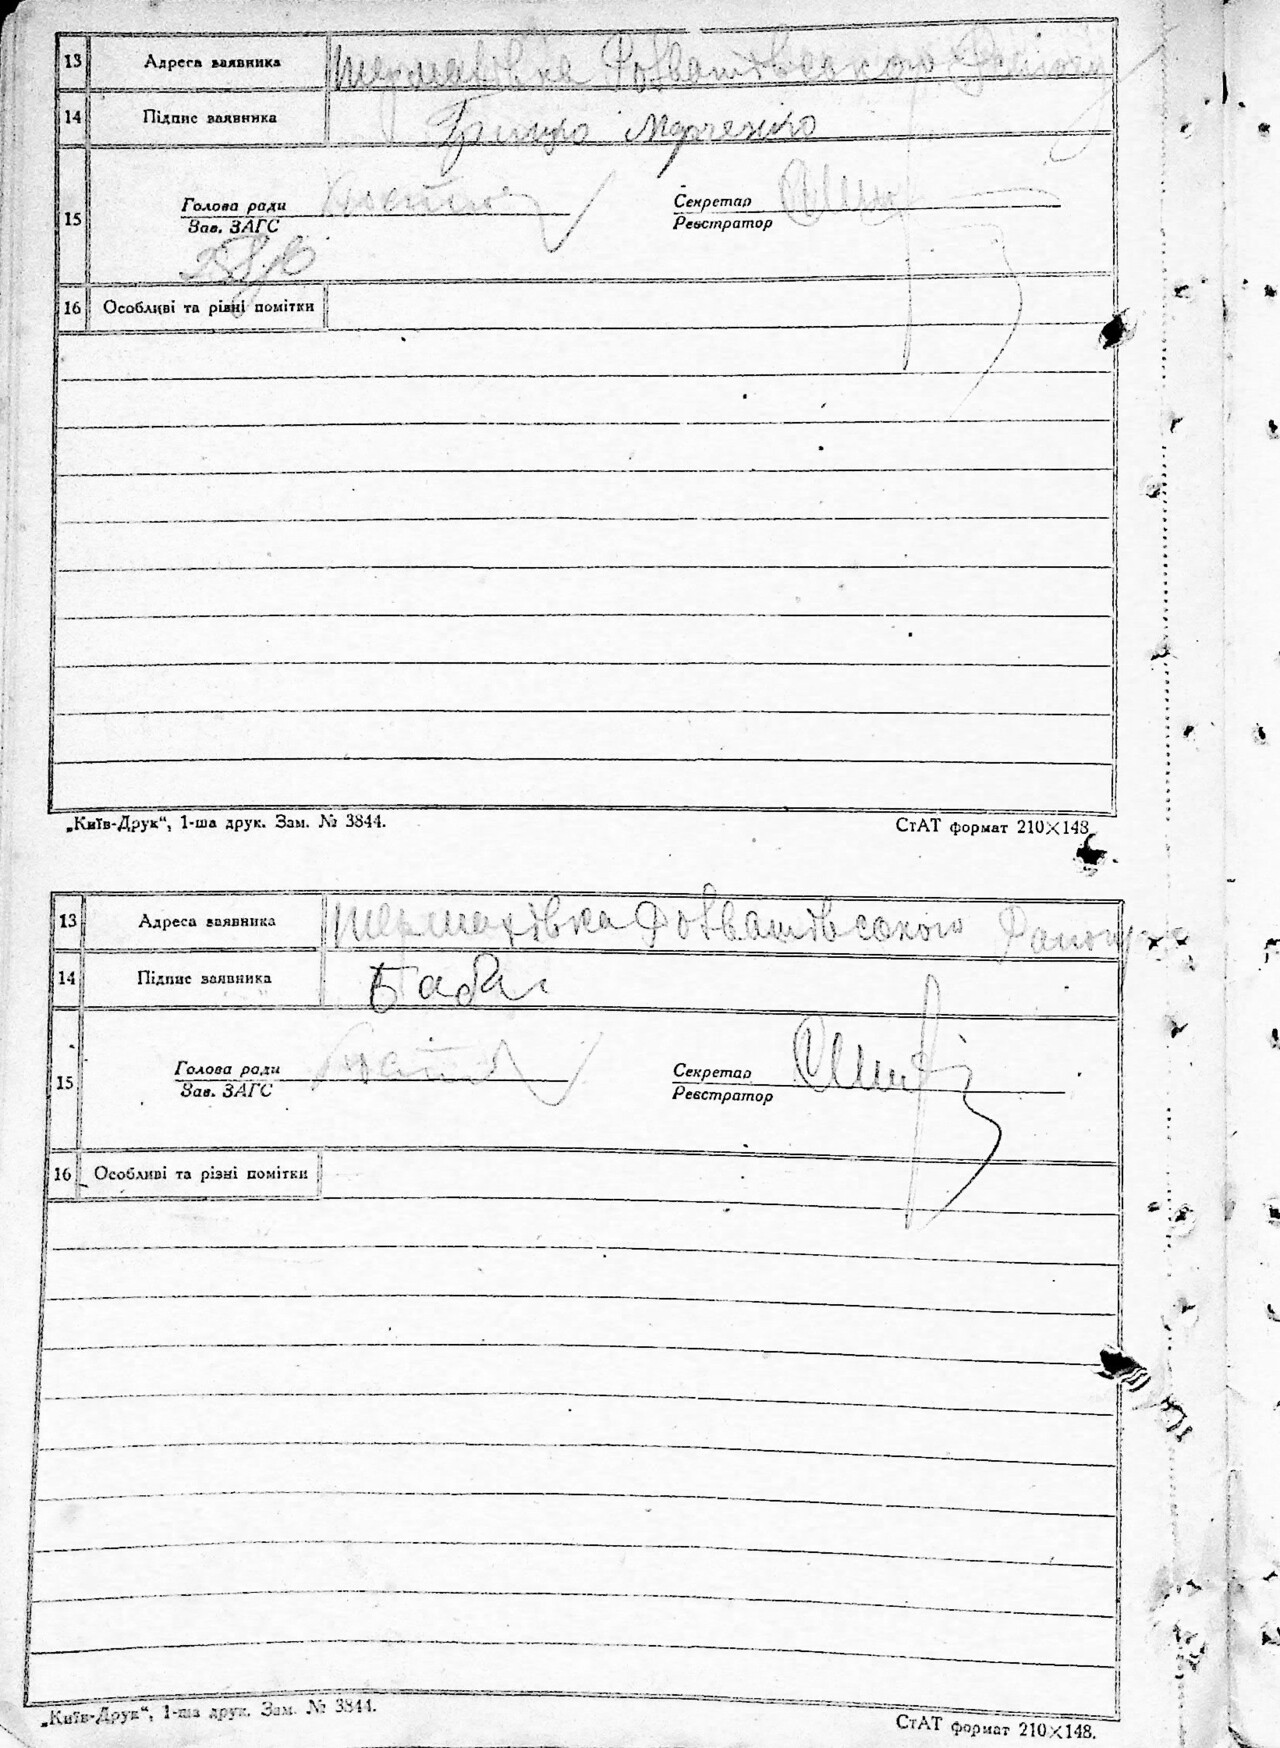 13 Адреса заявника Шермахівка Розважівського Району
14 Підпис заявника Марченко
15 Голова ради Секретар
Зав. ЗАГС Реєстратор
16 Особливі та різні помітки
„Київ-Друк“, 1-ша друк. Зам. № 3844. СтАТ формат 210×148.
13 Адреса заявника Шермахівка Розважівського Району
14 Підпис заявника
15 Голова ради Секретар
Зав. ЗАГС Реєстратор
16 Особливі та різні помітки
„Київ-Друк“, 1-ша друк. Зам. № 3844. СтАТ формат 210×148.